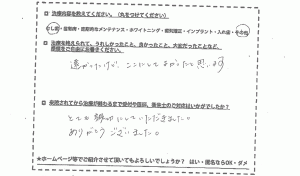 治療内容を教えてください。（丸をつけてください）
むし歯・歯周病・定期的なメンテナンス・ホワイトニング・歯列矯正・インプラント・入れ歯・その他
治療を終えられて、うれしかったこと、良かったこと、大変だったことなど、
感想をご自由にお書きください。
遠かったけど、ここにしてよかったと思います
来院されてから治療が終わるまで受付や医師、衛生士の対応はいかがでしたか？
とても親切にしていただきました。
ありがとうございました。
★ホームページ等でご紹介させて頂いてもよろしいでしょうか？ はい・匿名ならOK・ダメ